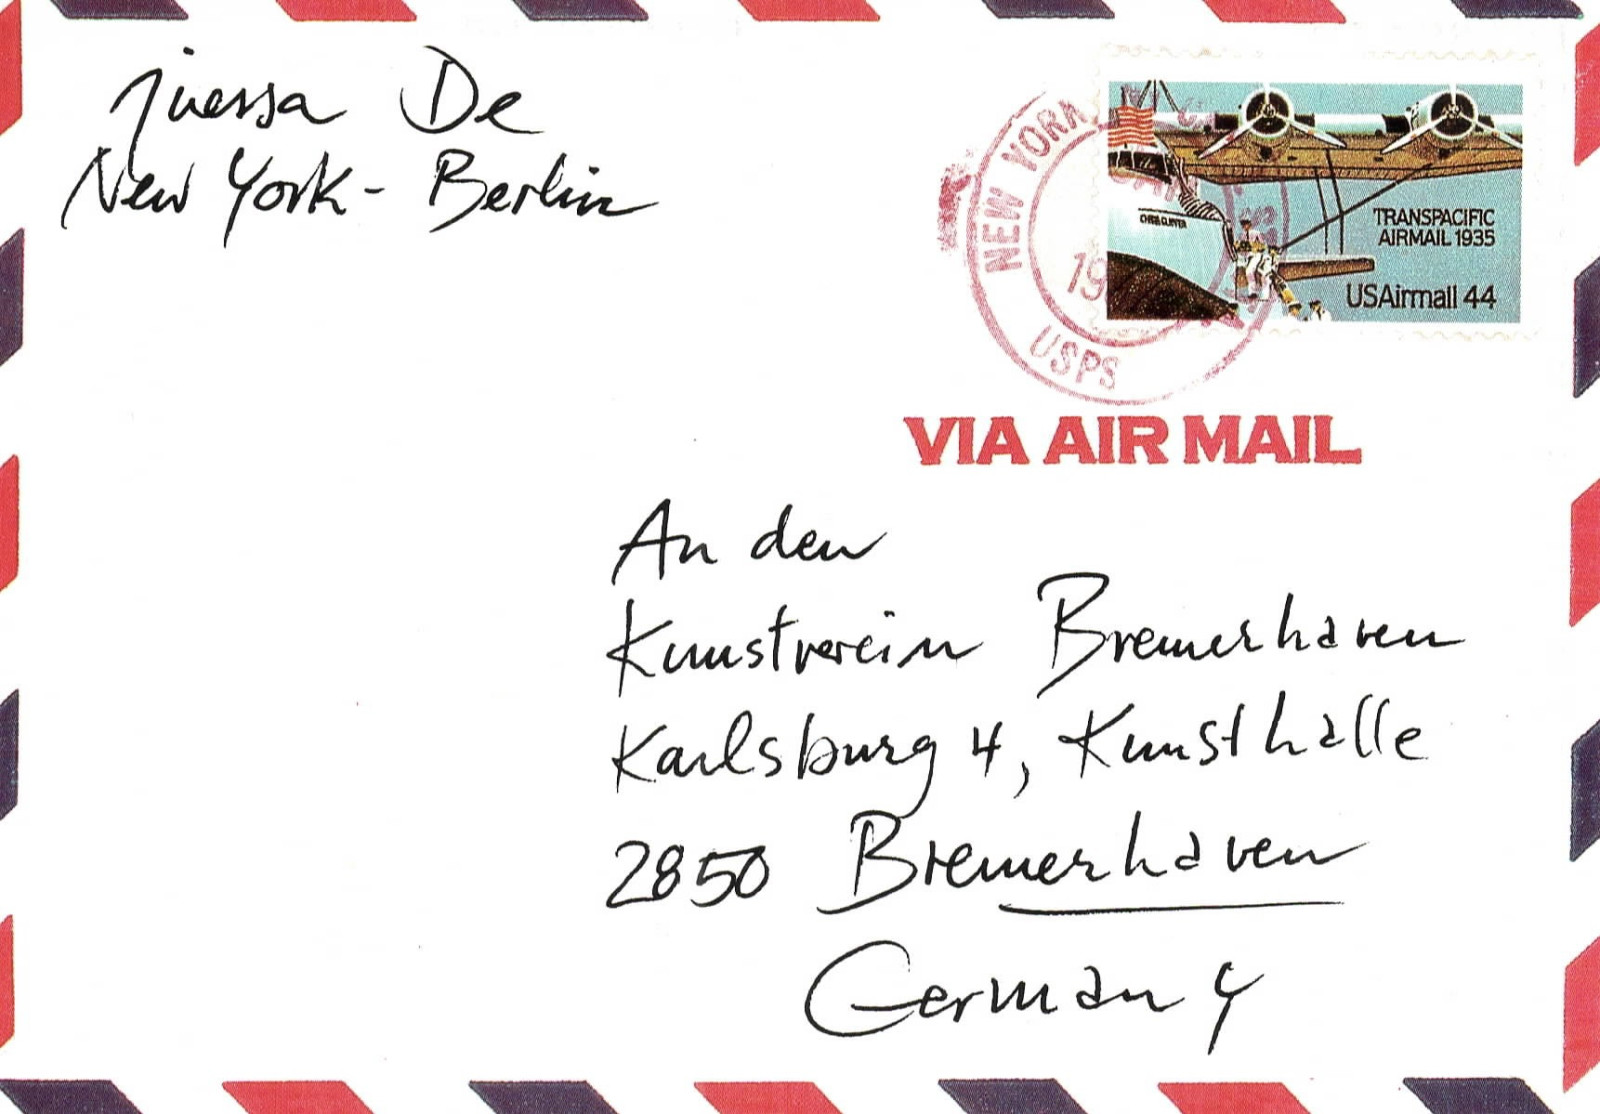 New York - Berlin
NEW YORK
19
USPS
TRANSPACIFIC
AIRMAIL 1935
USAirmail 44
VIA AIR MAIL
An den
Kunstverein Bremerhaven
Karlsburg 4, Kunsthalle
2850 Bremerhaven
Germany